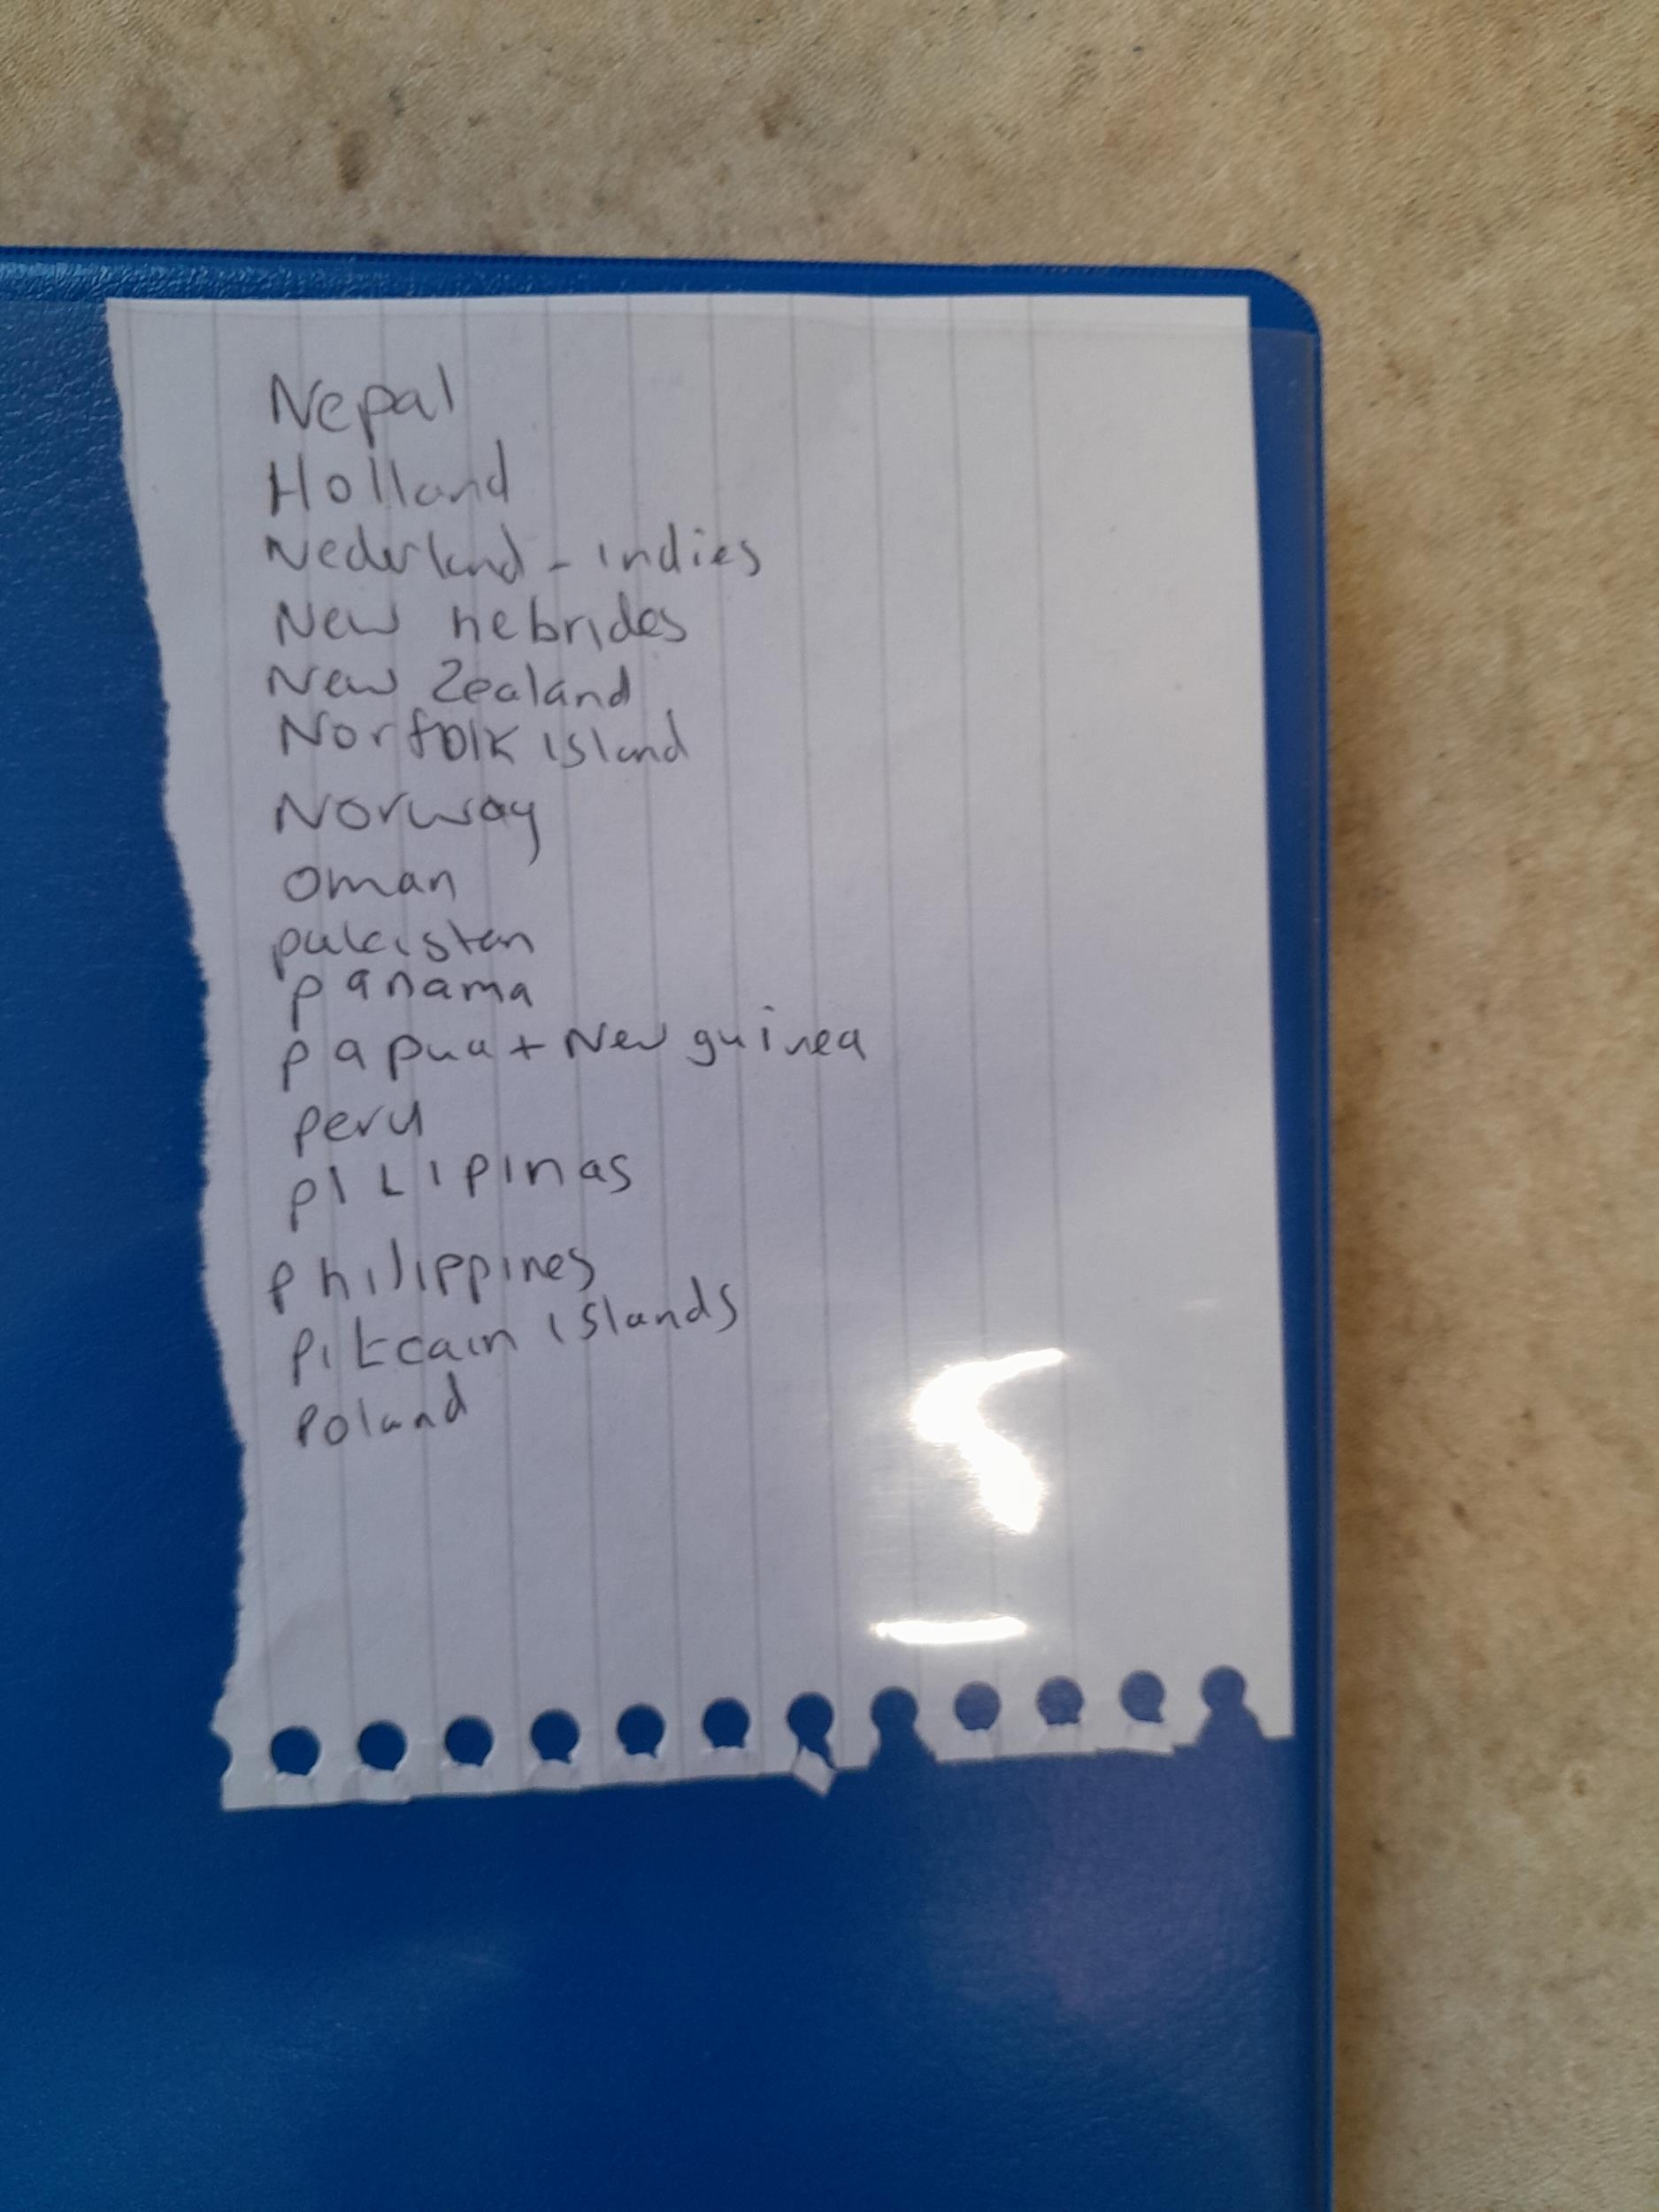 Nepal
Holland
Nederland - indies
New hebrides
New Zealand
Norfolk island
Norway
Oman
pakistan
panama
papua + New guinea
peru
pilipinas
philippines
pitcain islands
poland